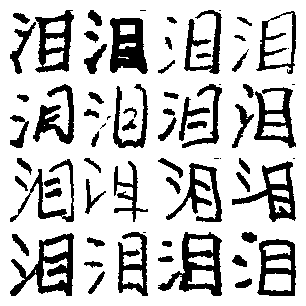 泪泪泪泪
泪泪泪泪
泪泪泪泪
泪泪泪泪